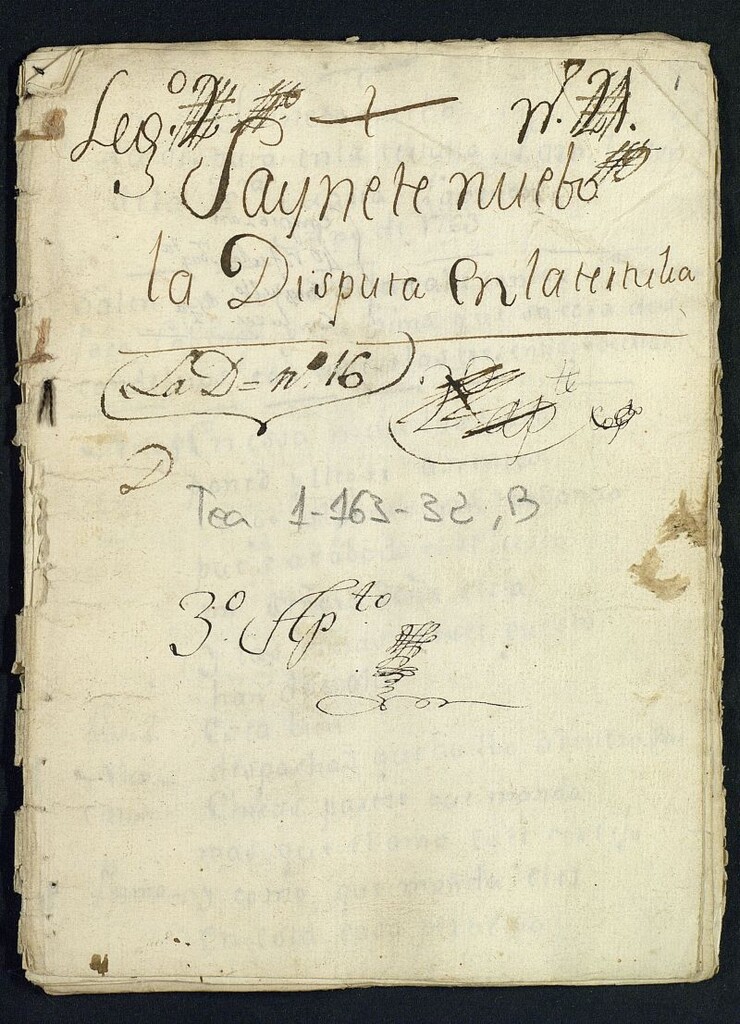 Leg.º 2
nº. 21.
3
Saynete nuebo
la Disputa en la tertulia
La D = nº 16
D
Tea 1-163-32, B
3º. Apto